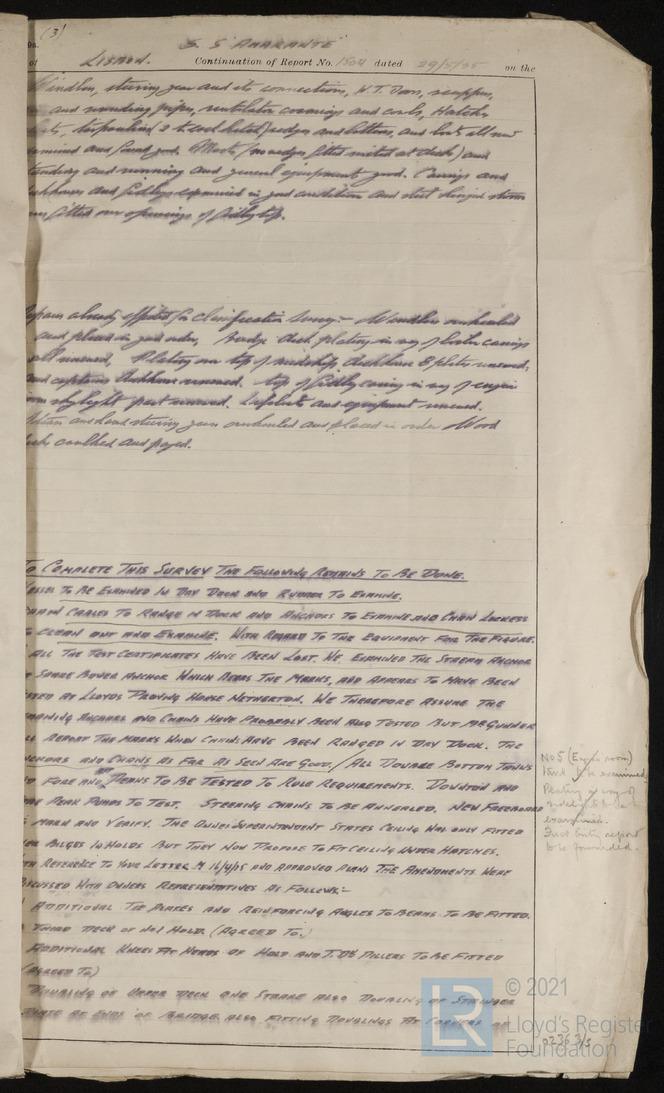 (3)
S. S "AMARANTE"
of LISBON. Continuation of Report No. 1504 dated 29/5/35 on the
Windlass, steering gear and its connections, W.T. Doors, scuppers,
and sounding pipes, ventilator coamings and cowls, Hatches
tarpaulins 2 to each hatch, wedges and battens, and boats all now
examined and found good. Masts (no wedges fitted at deck) and
standing and running and general equipment good. Casings and
deckhouses and fidleys examined in good condition and steel hinged storm
fitted over openings of fidley top.
Repairs already effected for classification Survey:- Windlass overhauled
and placed in good order, Bridge deck plating in way of boiler casings
all renewed, Plating on top of midship deckhouse 8 plates renewed,
and captains deckhouse renewed. Top of fidley casing in way of engine
room skylight part renewed. Lifeboats and equipment renewed.
and hand steering gear overhauled and placed in order Wood
decks caulked and payed.
TO COMPLETE THIS SURVEY THE FOLLOWING REMAINS TO BE DONE.
VESSEL TO BE EXAMINED IN DRY DOCK AND RUDDER TO EXAMINE.
CHAIN CABLES TO RANGE IN DOCK AND ANCHORS TO EXAMINE AND CHAIN LOCKERS
TO CLEAN OUT AND EXAMINE. WITH REGARD TO THE EQUIPMENT FOR THE FIGURE.
ALL THE TEST CERTIFICATES HAVE BEEN LOST. WE EXAMINED THE STREAM ANCHOR
SPARE BOWER ANCHOR WHICH BEARS THE MARKS, AND APPEARS TO HAVE BEEN
TESTED AT LLOYDS PROVING HOUSE NETHERTON. WE THEREFORE ASSUME THE
REMAINING ANCHORS AND CHAINS HAVE PROBABLY BEEN ALSO TESTED BUT MR GUNNER
WILL REPORT THE MARKS WHEN CHAINS HAVE BEEN RANGED IN DRY DOCK. THE
ANCHORS AND CHAINS AS FAR AS SEEN ARE GOOD. / ALL DOUBLE BOTTOM TANKS
FORE AND AFT PEAKS TO BE TESTED TO RULE REQUIREMENTS. DOWNTON AND
FORE PEAK PUMPS TO TEST. STEERING CHAINS TO BE ANNEALED. NEW FREEBOARD
TO MARK AND VERIFY. THE OWNERS SUPERINTENDENT STATES CEILING WAS ONLY FITTED
OVER BILGES IN HOLDS BUT THEY NOW PROPOSE TO FIT CEILING UNDER HATCHES.
WITH REFERENCE TO YOUR LETTER M 16/4/35 AND APPROVED PLANS THE AMENDMENTS WERE
DISCUSSED WITH OWNERS REPRESENTATIVES AS FOLLOWS:-
ADDITIONAL TIE PLATES AND REINFORCING ANGLES TO BEAMS TO BE FITTED.
THIRD DECK OF NO1 HOLD. (AGREED TO.)
ADDITIONAL KNEES AT HEADS OF HOLD AND T. DK PILLERS TO BE FITTED
(AGREED TO)
DOUBLING OF UPPER DECK ONE STRAKE ALSO DOUBLING OF STRINGER
PLATE AT ENDS OF BRIDGE, ALSO FITTING DOUBLINGS AT CORNERS OF
No 5 (Engine room)
tank to be examined
Plating in way of
to be
examined.
First Entry report
to be forwarded.
LR
© 2021
Lloyd's Register
Foundation
02363/5